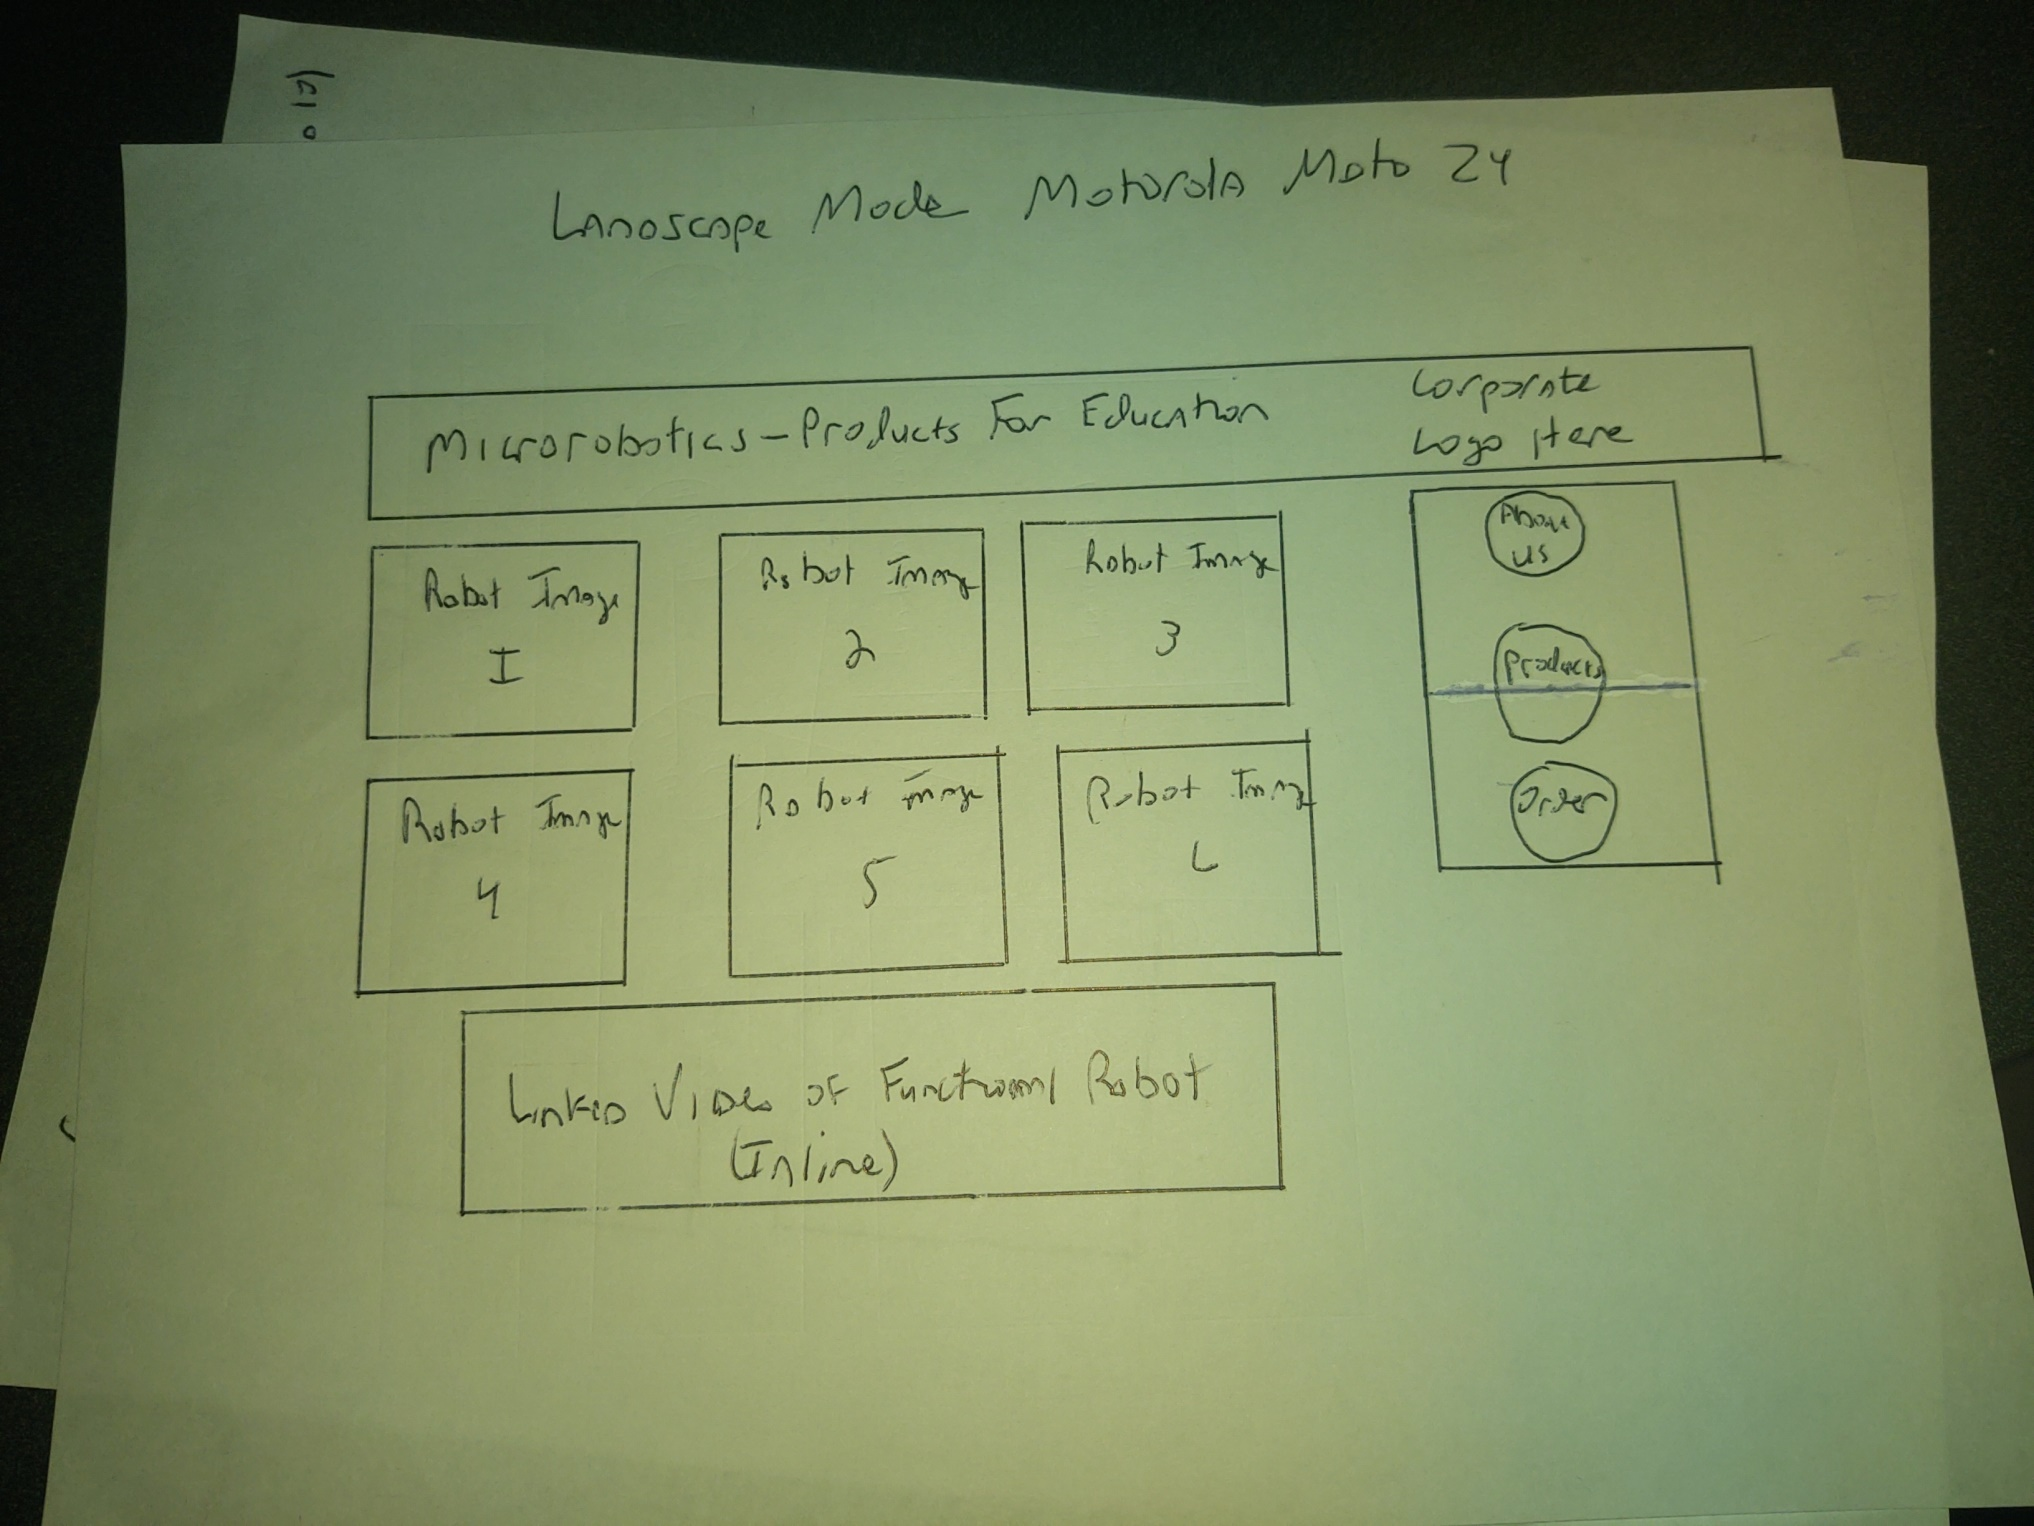 Landscape Mode Motorola Moto Z4
Microrobotics - Products For Education
Corporate
Logo Here
Robot Image
1
Robot Image
2
Robot Image
3
About
us
Products
Order
Robot Image
4
Robot Image
5
Robot Image
6
Linked Video of Functional Robot
(Inline)